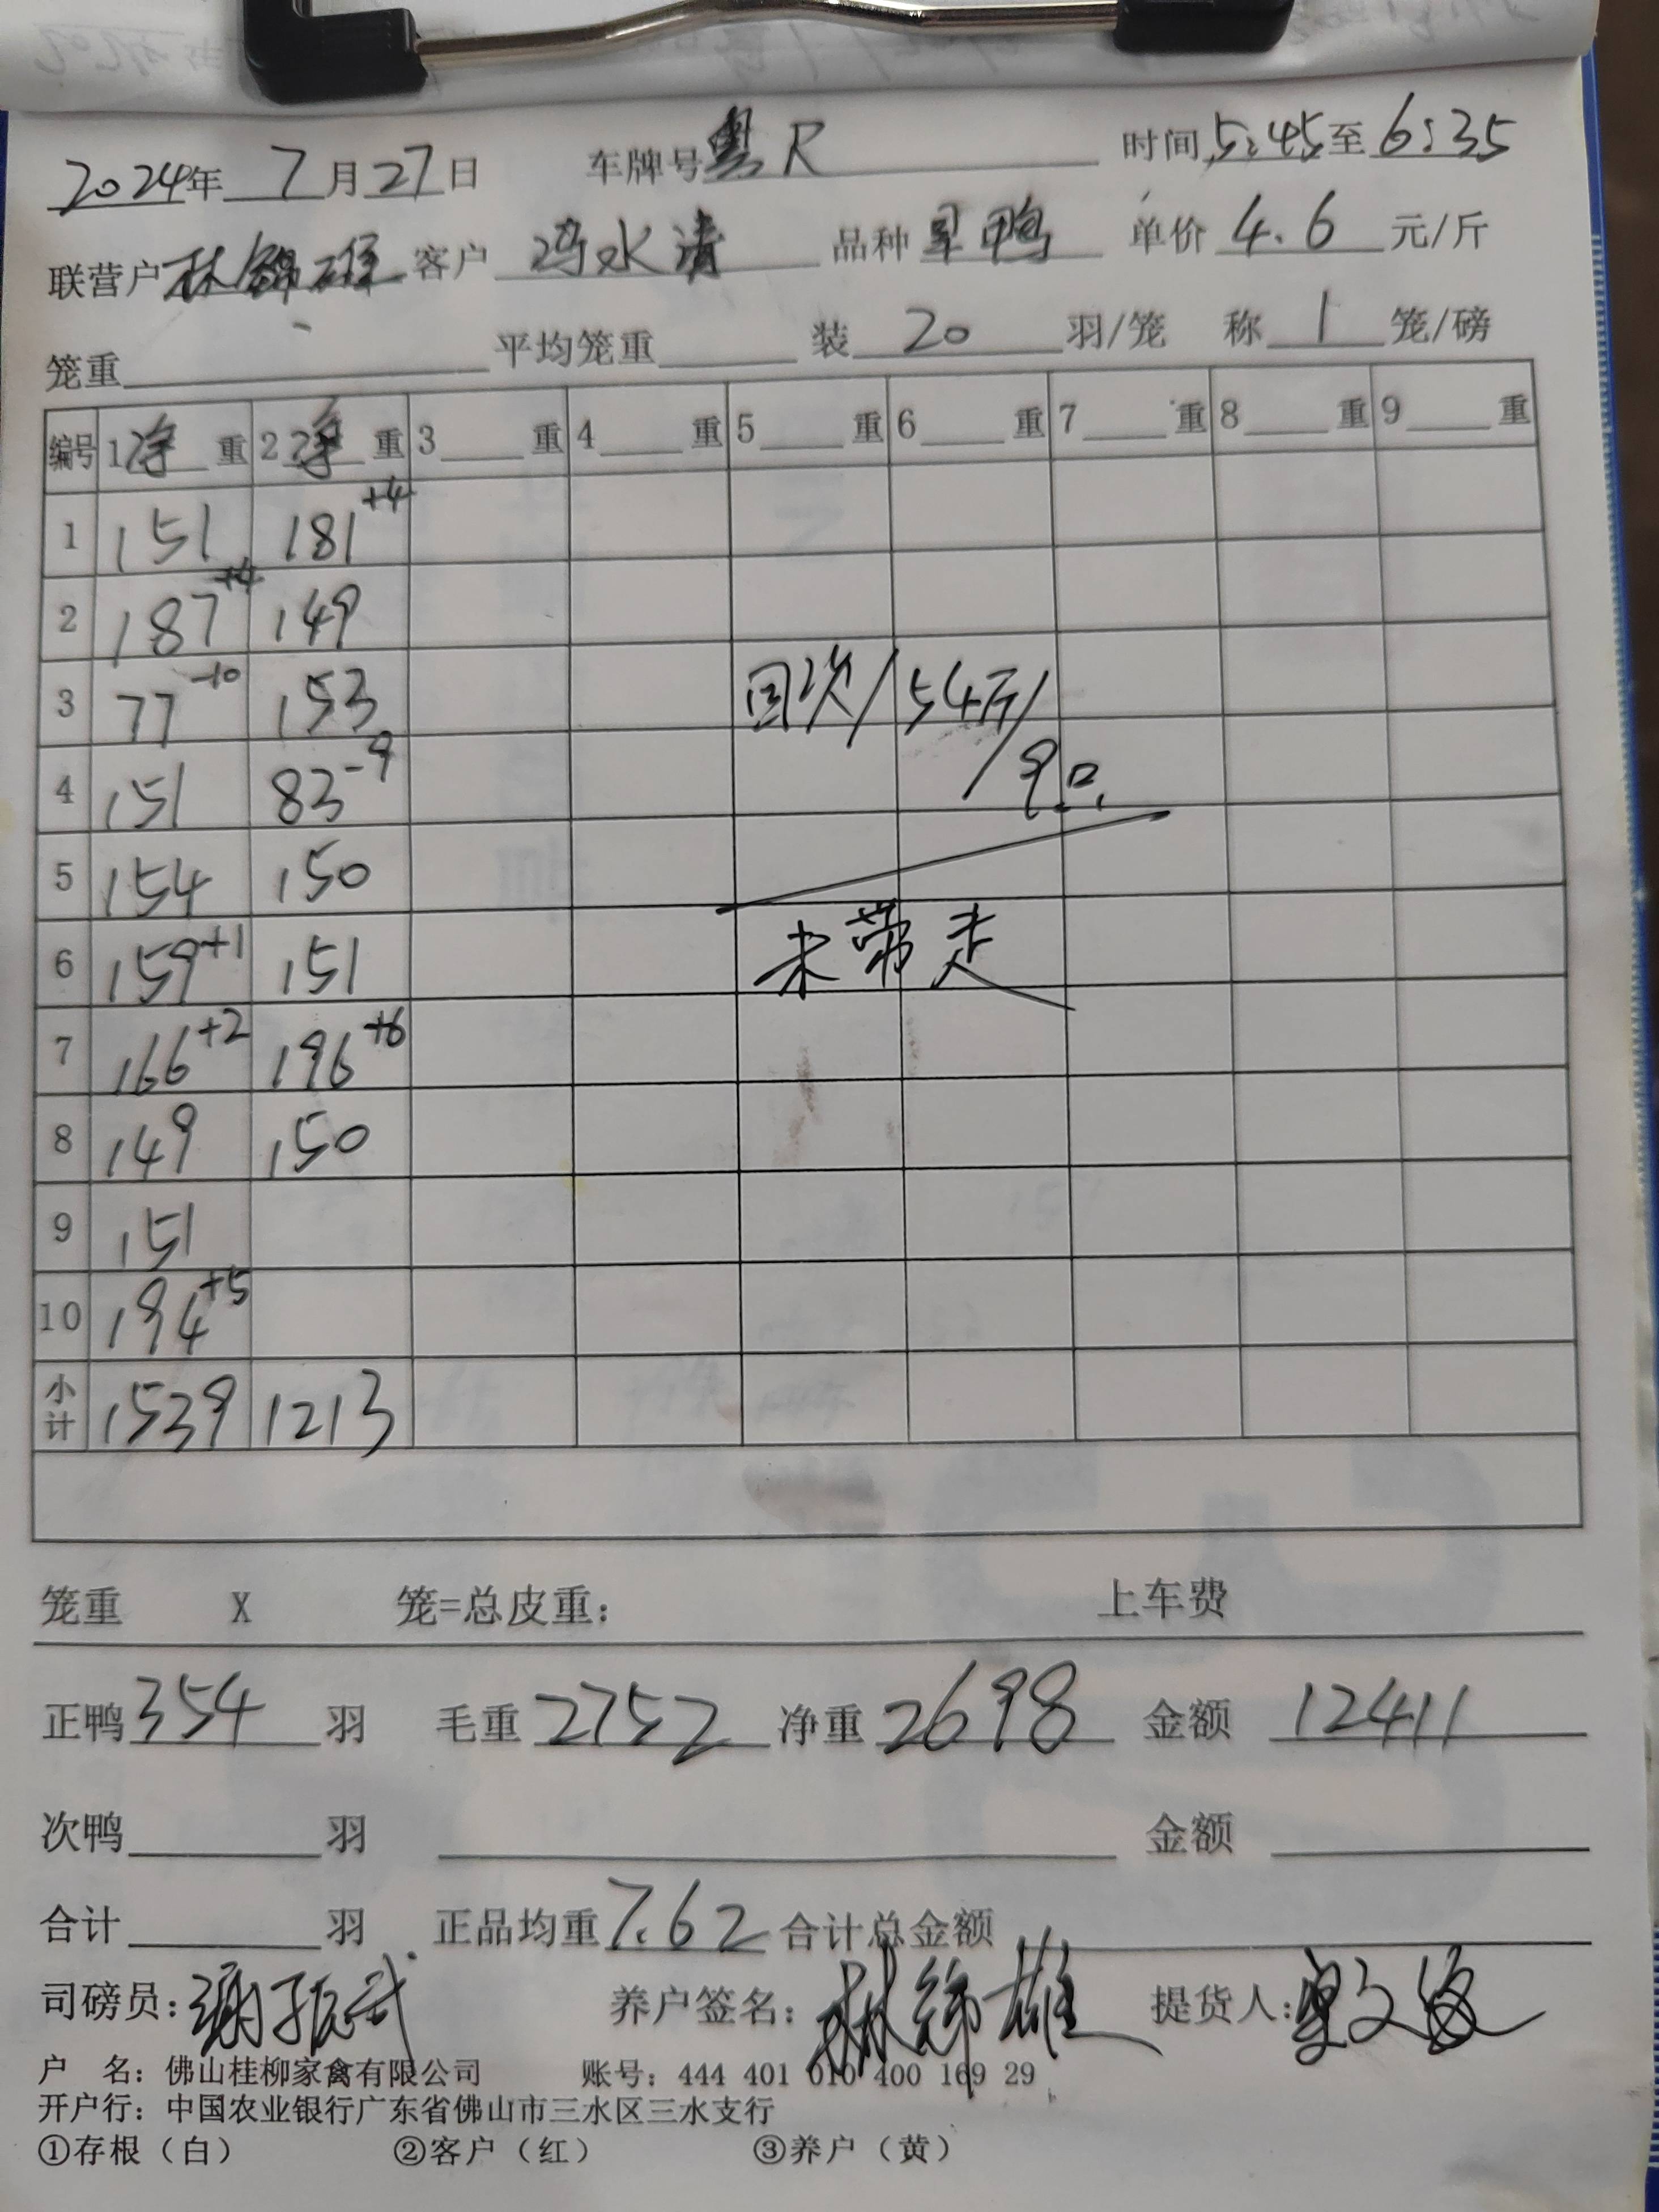 2024年 7月27日 车牌号粤R 时间5:45至6:35
联营户林锦雄 客户 冯水清 品种旱鸭 单价4.6元/斤
笼重 平均笼重 装 20 羽/笼 称 1 笼/磅
编号 1净 重 2净 重 3 重 4 重 5 重 6 重 7 重 8 重 9 重
1 151 181+4
2 187+4 149
3 77-10 153
4 151 83-9
5 154 150
6 159+1 151
7 166+2 196+6
8 149 150
9 151
10 194+5
小计 1539 1213
回次/54斤/
9只
未带走
笼重 X 笼=总皮重: 上车费
正鸭354羽 毛重2752 净重2698 金额 12411
次鸭 羽 金额
合计 羽 正品均重7.62 合计总金额
司磅员:谢振武 养户签名:林锦雄 提货人:
户 名: 佛山桂柳家禽有限公司 账号: 444 401 010 400 169 29
开户行: 中国农业银行广东省佛山市三水区三水支行
①存根（白） ②客户（红） ③养户（黄）